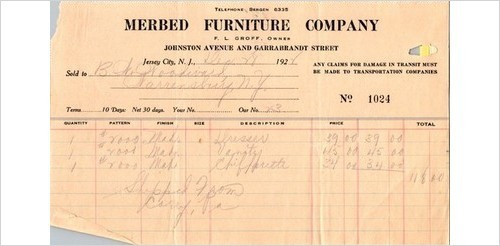 TELEPHONE, BERGEN 6335
MERBED FURNITURE COMPANY
F. L. GROFF, OWNER
JOHNSTON AVENUE AND GARRABRANDT STREET
Jersey City, N. J., 28 192
ANY CLAIMS FOR DAMAGE IN TRANSIT MUST
BE MADE TO TRANSPORTATION COMPANIES
Sold to B. Woodward
Warrensburg N.Y.
No 1024
Terms 10 Days: Net 30 days. Your No. Our No.
QUANTITY PATTERN FINISH SIZE DESCRIPTION PRICE TOTAL
1 #2000 Mah Dresser 39 00 39 00
1 #2000 Mah Vanity 45 00 45 00
1 #2000 Mah Chifforette 34 00 34 00
118 00
Shipped From
Corry, Pa